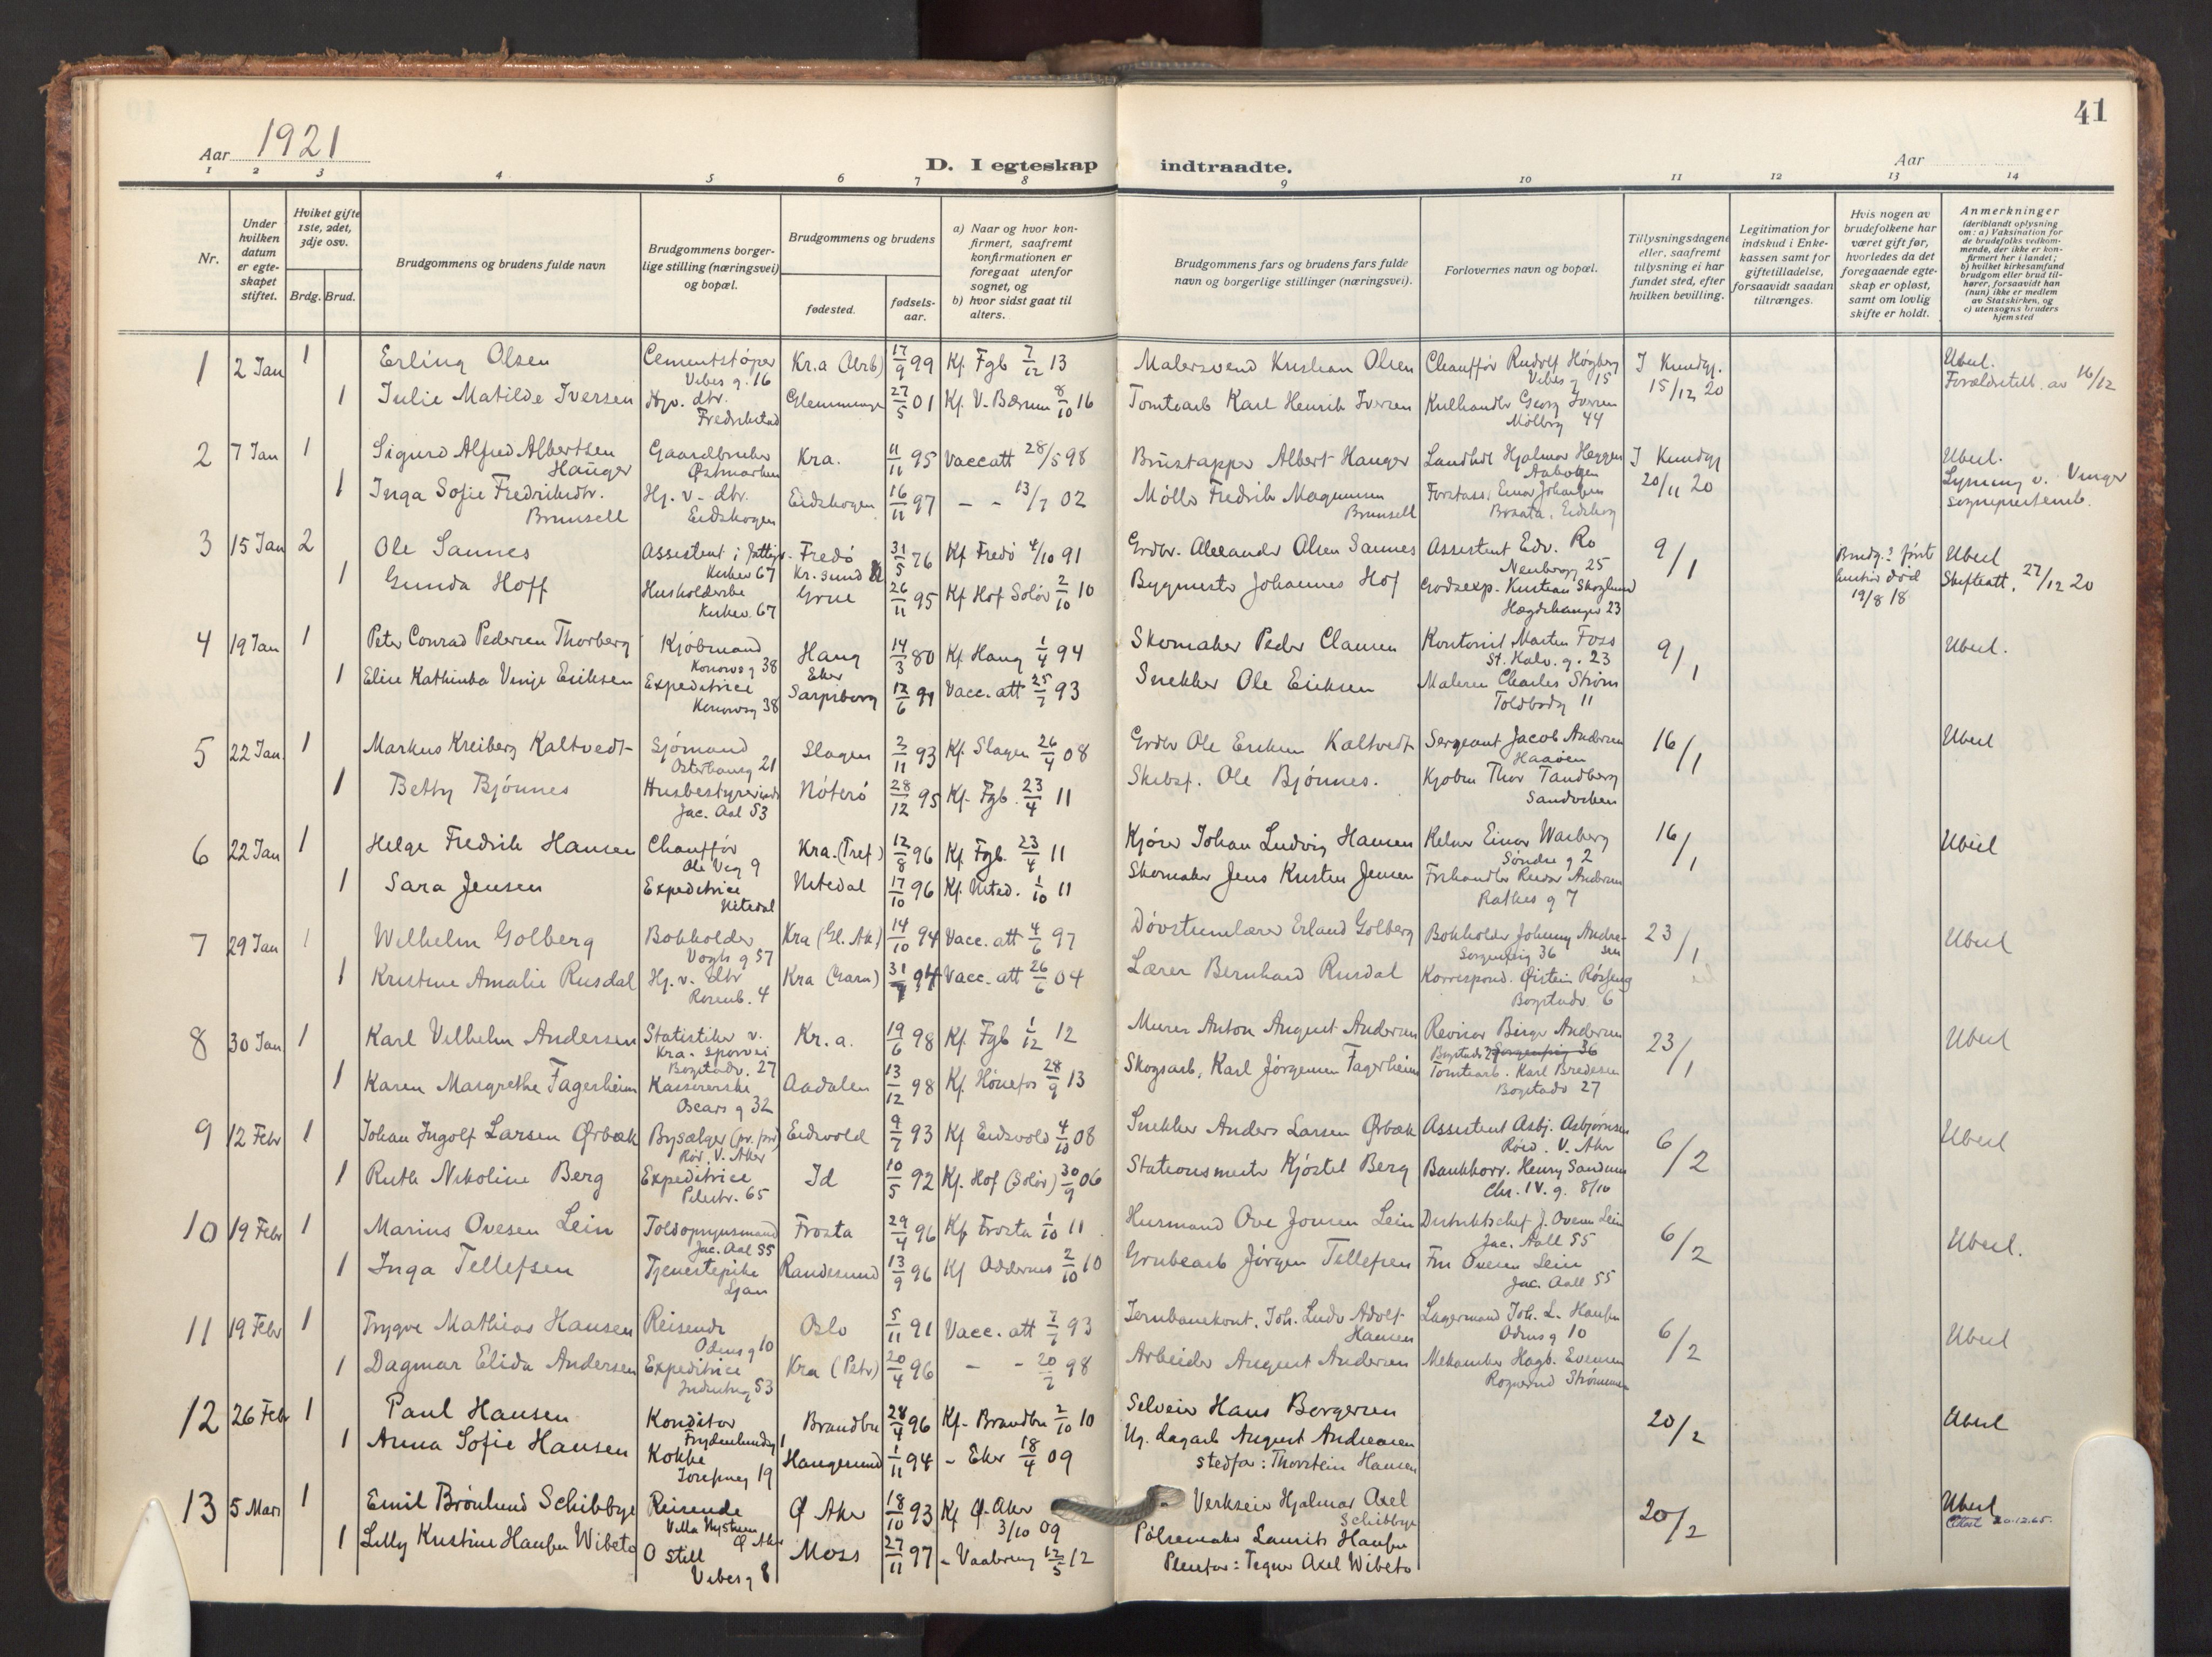 41
Aar 1921
D. I egteskap indtraadte.
Aar
1 2 3 4 5 6 7 8 9 10 11 12 13 14
Nr.
Under hvilken datum er egte-skapet stiftet.
Hviket gifte 1ste, 2det, 3dje osv.
Brdg. Brud.
Brudgommens og brudens fulde navn
Brudgommens borger-lige stilling (næringsvei) og bopæl.
Brudgommens og brudens
fødested.
fødsels-aar.
a) Naar og hvor kon-firmert, saafremt konfirmationen er foregaat utenfor sognet, og
b) hvor sidst gaat til alters.
Brudgommens fars og brudens fars fulde navn og borgerlige stillinger (næringsvei).
Forlovernes navn og bopæl.
Tillysningsdagene eller, saafremt tillysning ei har fundet sted, efter hvilken bevilling.
Legitimation for indskud i Enke-kassen samt for giftetilladelse, forsaavidt saadan tiltrænges.
Hvis nogen av brudefolkene har været gift før, hvorledes da det foregaaende egte-skap er opløst, samt om lovlig skifte er holdt.
Anmerkninger (deriblandt oplysning om: a) Vaksination for de brudefolks vedkom-mende, der ikke er kon-firmert her i landet; b) hvilket kirkesamfund brudgom eller brud til-hører, forsaavidt han (hun) ikke er medlem av Statskirken, og c) utensogns bruders hjemsted
1 2 Jan 1 Erling Olsen Cementstøper Vibes g. 16 Kr.a 17/9 99 Kf. Fgb 7/12 13 Malersvend Kristian Olsen Chauffør Rudolf Høgberg Vibes g 15 J Kundgj. 15/12 20 Ubesl.
1 Julie Matilde Iversen Hjv. dtr. Fredrikstad Glemminge 27/5 01 Kf. V. Bærum 8/10 16 Tomtearb Karl Henrik Iversen Kulhandler Georg Iversen Møllerg 44 Forældretill. av 16/12
2 7 Jan 1 Sigurd Alfred Albertsen Hauger Gaardbruker Østmarken Kra. 11/11 95 Vaccatt 28/5 98 Albert Hauger Hjalmar J Kundgj 20/11 20 Ubesl.
1 Inga Sofie Fredriksdtr. Brunsell Hj. v. dtr. Eidskogen Eidskogen 16/11 97 - - 13/7 02 Møller Fredrik Magnussen Brunsell Forstass. Einar Johansen Eidskog Lysning v. Vinger sogneprestemb.
3 15 Jan 2 Ole Sannes Assistent i fattigv. Kirkev 67 Fredø Kr.sund N 31/5 76 Kf Fredø 4/10 91 Grdbr. Alexander Olsen Sannes Assistent Edv. Ro Neuberg 25 9/1 Brudg.s første hustru død 19/8 18 Ubesl
1 Gunda Hoff Husholderske Kirkev. 67 Grue 26/11 95 Kf Hof Solør 2/10 10 Bygmester Johannes Hof Godsexp. Kristian Skoglund Hægdehaugen 23 Skifteatt. 27/12 20
4 19 Jan 1 Peter Conrad Pedersen Thorberg Kjøbmand Konowsg 38 Haug Eker 14/3 80 Kf. Haug 1/4 94 Skomaker Peder Clausen Kontorist Martin Foss St. Halv. g. 23 9/1 Ubesl.
1 Elise Kathinka Vinje Eriksen Expeditrice Konowsg 38 Sarpsborg 12/6 91 Vacc. att 25/7 93 Snekker Ole Eriksen Maleren Charles Strøm Toldbodg 11
5 22 Jan. 1 Markus Kreiberg Kaltvedt Sjømand Osterhausg 21 Slagen 2/11 93 Kf. Slagen 26/4 08 Grdbr Ole Eriksen Kaltvedt Sergeant Jacob Andersen Haaøen 16/1 Ubesl
1 Betty Bjønnes Husbestyrerinde Jac. Aal 53 Nøterø 28/12 95 Kf. Fgb. 23/4 11 Skibsf. Ole Bjønnes. Kjøbm Thor Tandberg Sandviken
6 22 Jan 1 Helge Fredrik Hansen Chauffør Ole Vig 9 Kra. (Tref) 12/8 96 Kf. Fgb. 23/4 11 Kjører Johan Ludvig Hansen Kelner Einar Warberg Søndre g 2 16/1 Ubesl
1 Sara Jensen Expeditrice Nitedal Nitedal 17/10 96 Kf. Nited. 1/10 11 Skomaker Jens Kristen Jensen Reidar Andersen Rathkes g 7
7 29 Jan 1 Wilhelm Golberg Bokholder Vogts g 57 Kra (Gl. Ak.) 14/10 94 Vacc. att 4/6 97 Døvstumlærer Erland Golberg Bokholder Johnny Andresen Sorgenfrig 36 23/1 Ubesl
1 Kristine Amalie Rusdal Hj. v. dtr Rosenb. 4 Kra (Garn) 31/7 94 Vacc. att 26/6 04 Lærer Bernhard Rusdal Korrespond. Øistein Røsseng Bogstadv 6
8 30 Jan 1 Karl Vilhelm Andersen Statistiker v. Kra. sporvei Bogstadv. 27 Kr.a. 19/6 98 Kf. Fgb 1/12 12 Murer Anton August Andersen Revisor Birger Andersen Bogstadv 27 Sorgenfrig 36 23/1 Ubesl
1 Karen Margrethe Fagerheim Kassererske Oscars g 32 Aadalen 13/12 98 Kf. Hønefos 28/9 13 Skogsarb. Karl Jørgensen Fagerheim Tomtearb. Karl Bredesen Bogstadv 27
9 12 Febr 1 Johan Ingolf Larsen Ørbæk Bysælger Røa. V. Aker Eidsvold 9/7 93 Kf Eidsvold 4/10 08 Snekker Anders Larsen Ørbæk Assistent Asbj. Asbjørnsen Røid. V. Aker 6/2 Ubesl
1 Ruth Nikoline Berg Expeditrice Pilestr. 65 Id 10/5 92 Kf. Hof (Solør) 30/9 06 Stationsmester Kjøstel Berg Bankkorr. Henry Sandnes Chr. IV. g. 8/10
10 19 Febr 1 Marius Ovesen Lein Toldopsynsmand Jac. Aal 55 Frosta 29/4 96 Kf Frosta 1/10 11 Husmand Ove Jonsen Lein Distriktschef J. Ovesen Lein Jac. Aall 55 6/2 Ubesl.
1 Inga Tellefsen Tjenestepike Ljan Randesund 13/9 96 Kf Oddernes 2/10 10 Grubearb Jørgen Tellefsen Fru Ovesen Lein Jac. Aall 55
11 19 Febr 1 Trygve Mathias Hansen Reisende Odins g 10 Oslo 5/11 91 Vacc. att 7/7 93 Jernbanekont. Joh. Ludv Adolf Hansen Lagermand Joh. L. Hansen Odins g 10 6/2 Ubesl
1 Dagmar Elida Andersen Expeditrice Industrig 53 Kra (Petr) 20/4 96 - - 20/7 98 Arbeider August Andersen Mekaniker Hagb. Evensen Strømmen
12 26 Feb 1 Paul Hansen Konditor Frydenlundsg 1 Brandbu 28/4 96 Kf. Brandbu 2/10 10 Selveier Hans Borgersen 20/2 Ubesl
1 Anna Sofie Hansen Kokke Josefinesg 19 Haugesund 1/11 94 - Eker 18/4 09 Ug. dagarb August Andreasen stedfar: Thorstein Hansen
13 5 Mars 1 Emil Brønlund Schibbye Reisende Villa Nystuen Ø Aker Ø Aker 18/10 93 Kf Ø. Aker 3/10 09 Verkseier Hjalmar Axel Schibbye 20/2 Ubesl
1 Lilly Kristine Hansen Wibeto O still Vibesg 8 Moss 27/11 97 - Vaalereng 12/5 12 Pølsemaker Laurits Hansen Pleiefar: Tegner Axel Wibeto Attest 20.12.65.